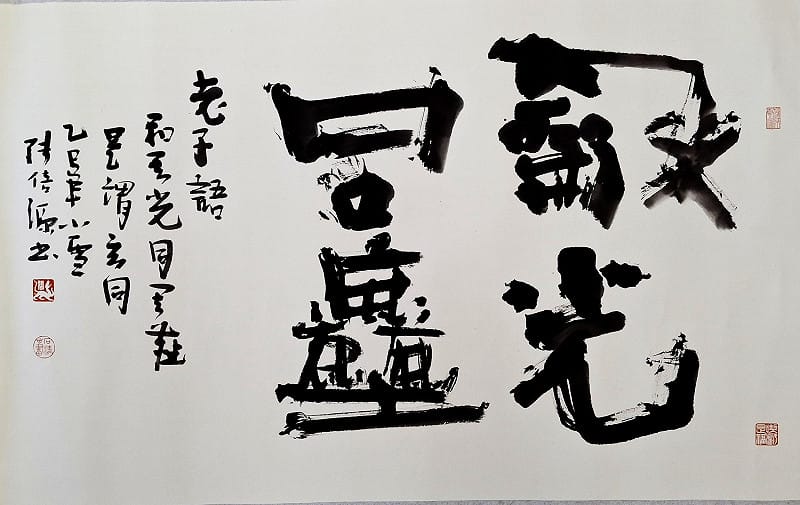 龢光
同塵
老子語
和其光同其塵
是謂玄同
乙巳年小雪
書